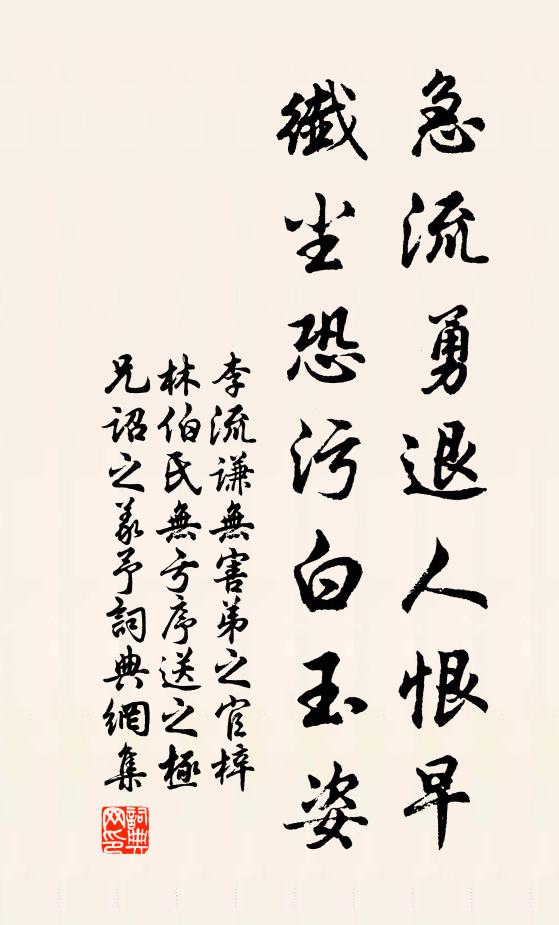 急流勇退人恨早
纖尘恐污白玉姿
李流謙無害弟之官梓
林伯氏無亏序送之極
兄詔之义予詞典網集
詞典
网印